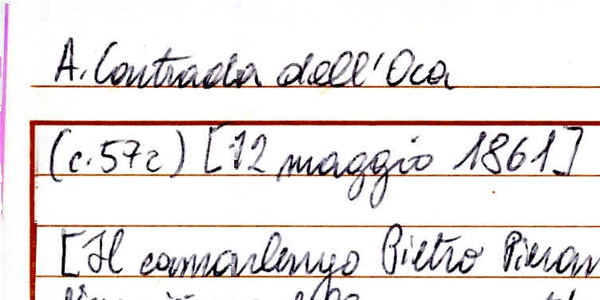 A. Contrada dell'Oca
(c. 57r) [12 maggio 1861]
[Il camarlengo Pietro